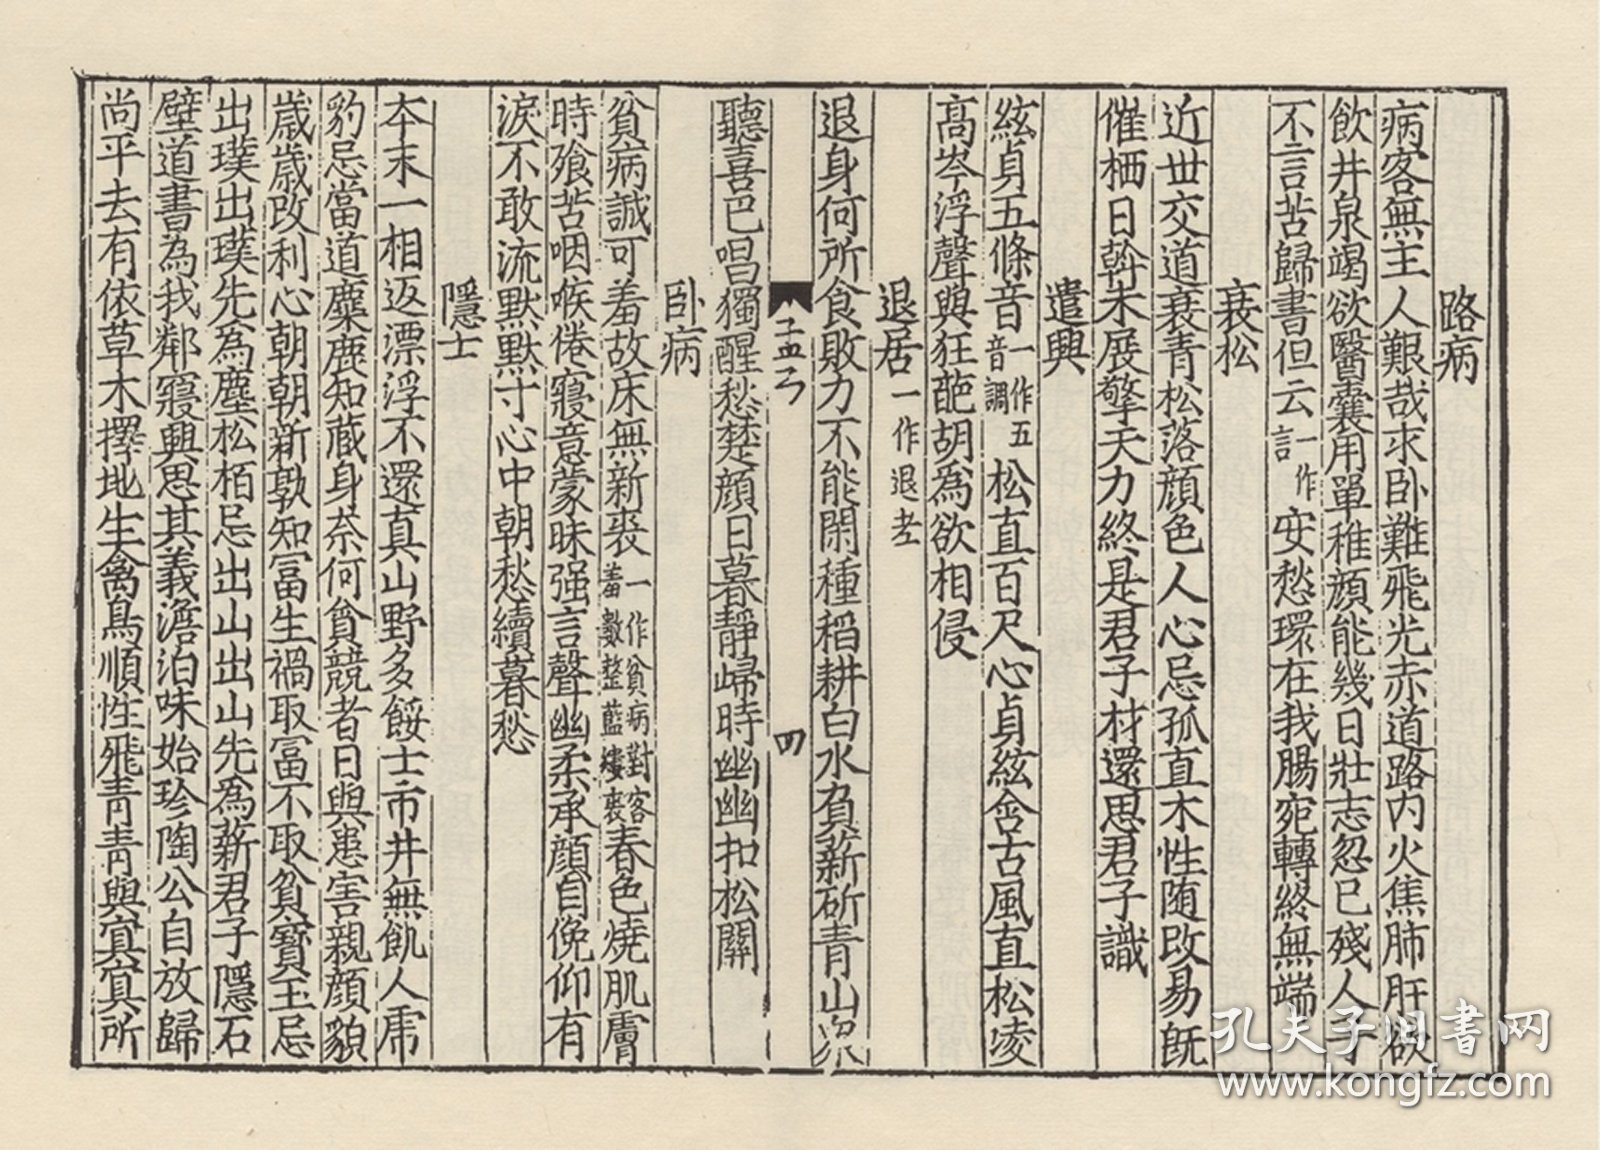 路病
病客無主人艱哉求卧難飛光赤道路内火焦肺肝欲
飲井泉竭欲醫囊用單稚顔能幾日壯志忽已殘人子
不言苦歸書但云一作言安愁環在我腸宛轉終無端
衰松
近世交道衰青松落顔色人心忌孤直木性随改易旣
催栖日幹未展擎天力終是君子材還思君子識
遣興
絃貞五條音一作五音調松直百尺心貞絃含古風直松凌
高岑浮聲與狂葩胡爲欲相侵
退居一作退老
退身何所食敗力不能閑種稻耕白水負薪斫青山衆
孟三
四
聽喜巴唱獨醒愁楚顔日暮靜歸時幽幽扣松關
卧病
貧病誠可羞故床無新裘一作貧病對客羞數整藍縷裘春色燒肌膚
時飱苦咽喉倦寢意蒙昧强言聲幽柔承顔自俛仰有
淚不敢流默默寸心中朝愁續暮愁
隱士
本末一相返漂浮不還真山野多餒士市井無飢人虎
豹忌當道麋鹿知藏身奈何貪競者日與患害親顔貌
歲歲改利心朝朝新孰知冨生禍取冨不取貧寳玉忌
出璞出璞先爲塵松栢忌出山出山先爲薪君子隱石
壁道書為我鄰寢興思其義澹泊味始珍陶公自放歸
尚平去有依草木擇地生禽鳥順性飛青青與冥冥所
孔夫子旧书网
www.kongfz.com